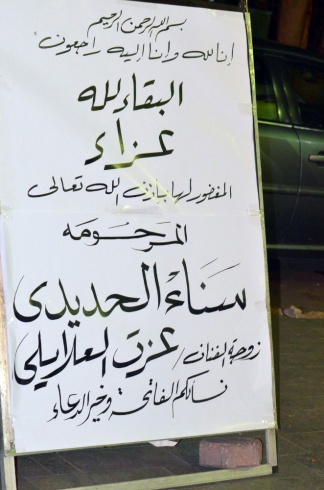 بسم الله الرحمن الرحيم
إنا لله وإنا إليه راجعون
البقاء لله
عزاء
المغفور لها بإذن الله تعالى
المرحومه
سناء الحديدى
زوجة الفنان / عزت العلايلى
نسألكم الفاتحة وخير الدعاء